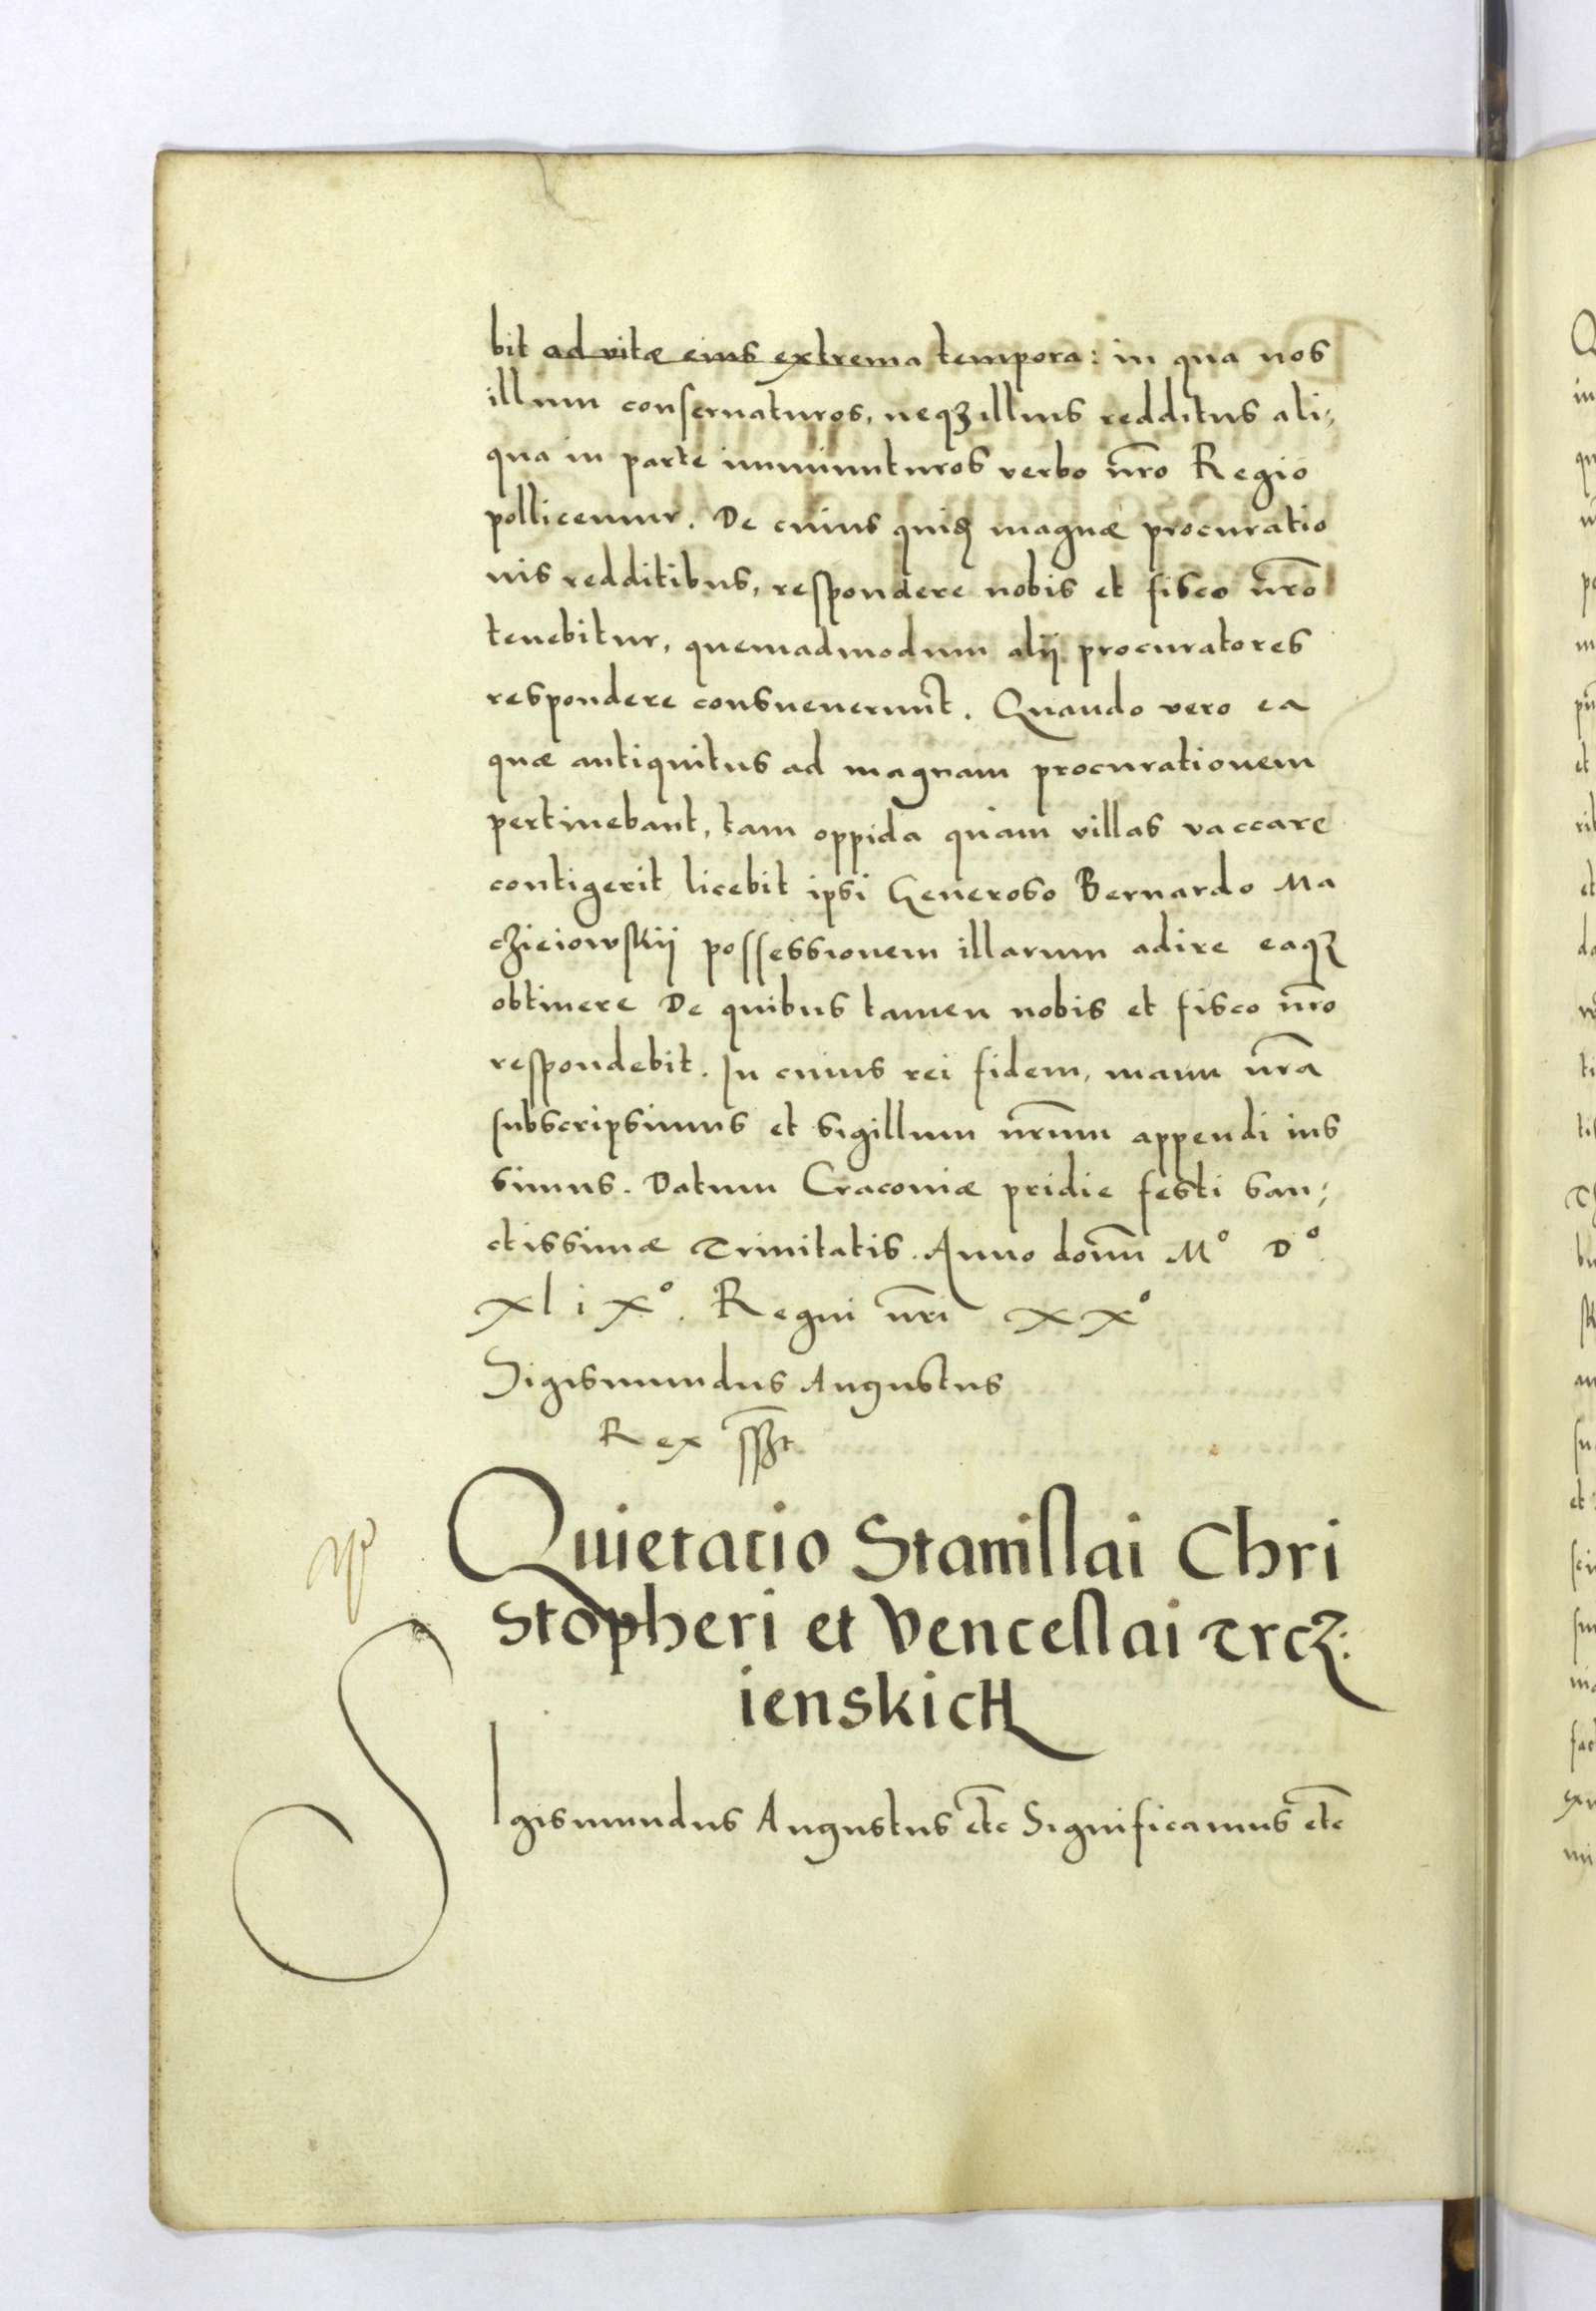 bit ad vitæ eius extrema tempora: in qua nos
illum conseruaturos, neqꝫ illius redditus ali,
qua in parte imminuturos verbo nr̃o Regio
pollicemur. De cuius quidẽ magnæ procuratio
nis redditibus, respondere nobis et fisco nr̃o
tenebitur, quemadmodum alij procuratores
respondere consueuerunt. Quando vero ea
quæ antiquitus ad magnam procurationem
pertinebant, tam oppida quam villas vaccare
contigerit licebit ipsi Generoso Bernardo Ma
czieiowskij possessionem illarum adire eaqꝫ
obtinere De quibus tamen nobis et fisco nr̃o
respondebit. In cuius rei fidem, manu nr̃a
subscripsimus et sigillum nr̃um appendi ius
simus. Datum Cracouiæ pridie festi san,
ctissimæ Trinitatis. Anno domī Mº Dº
xlixº. Regni nr̃i xxº
Sigismundus Augustus
Rex
Quietatio Stanislai Chri
stopheri et Venceslai Trcz:
ienskich
SIgismundus Augustus etc Significamus etc